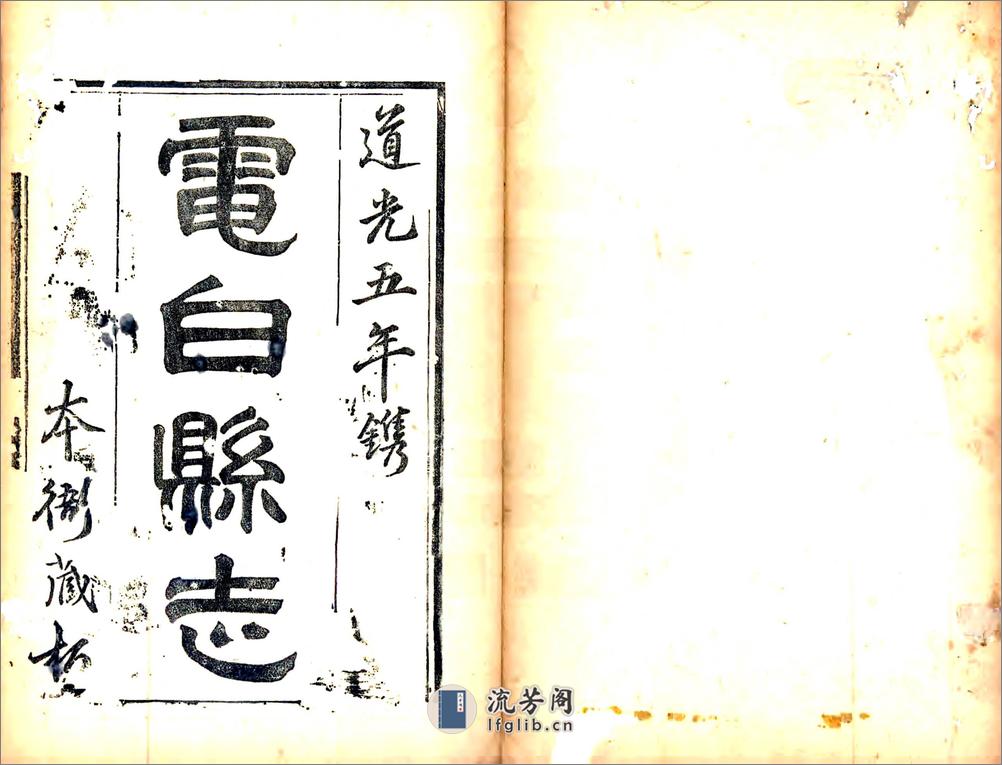 道光五年鐫
電白縣志
本衙藏板
流芳阁
lfglib.cn